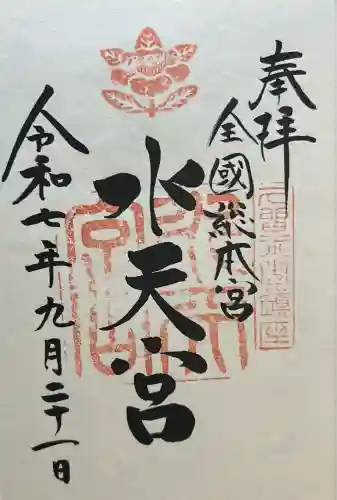 奉拝
全國総本宮
水天宮
令和七年九月二十一日